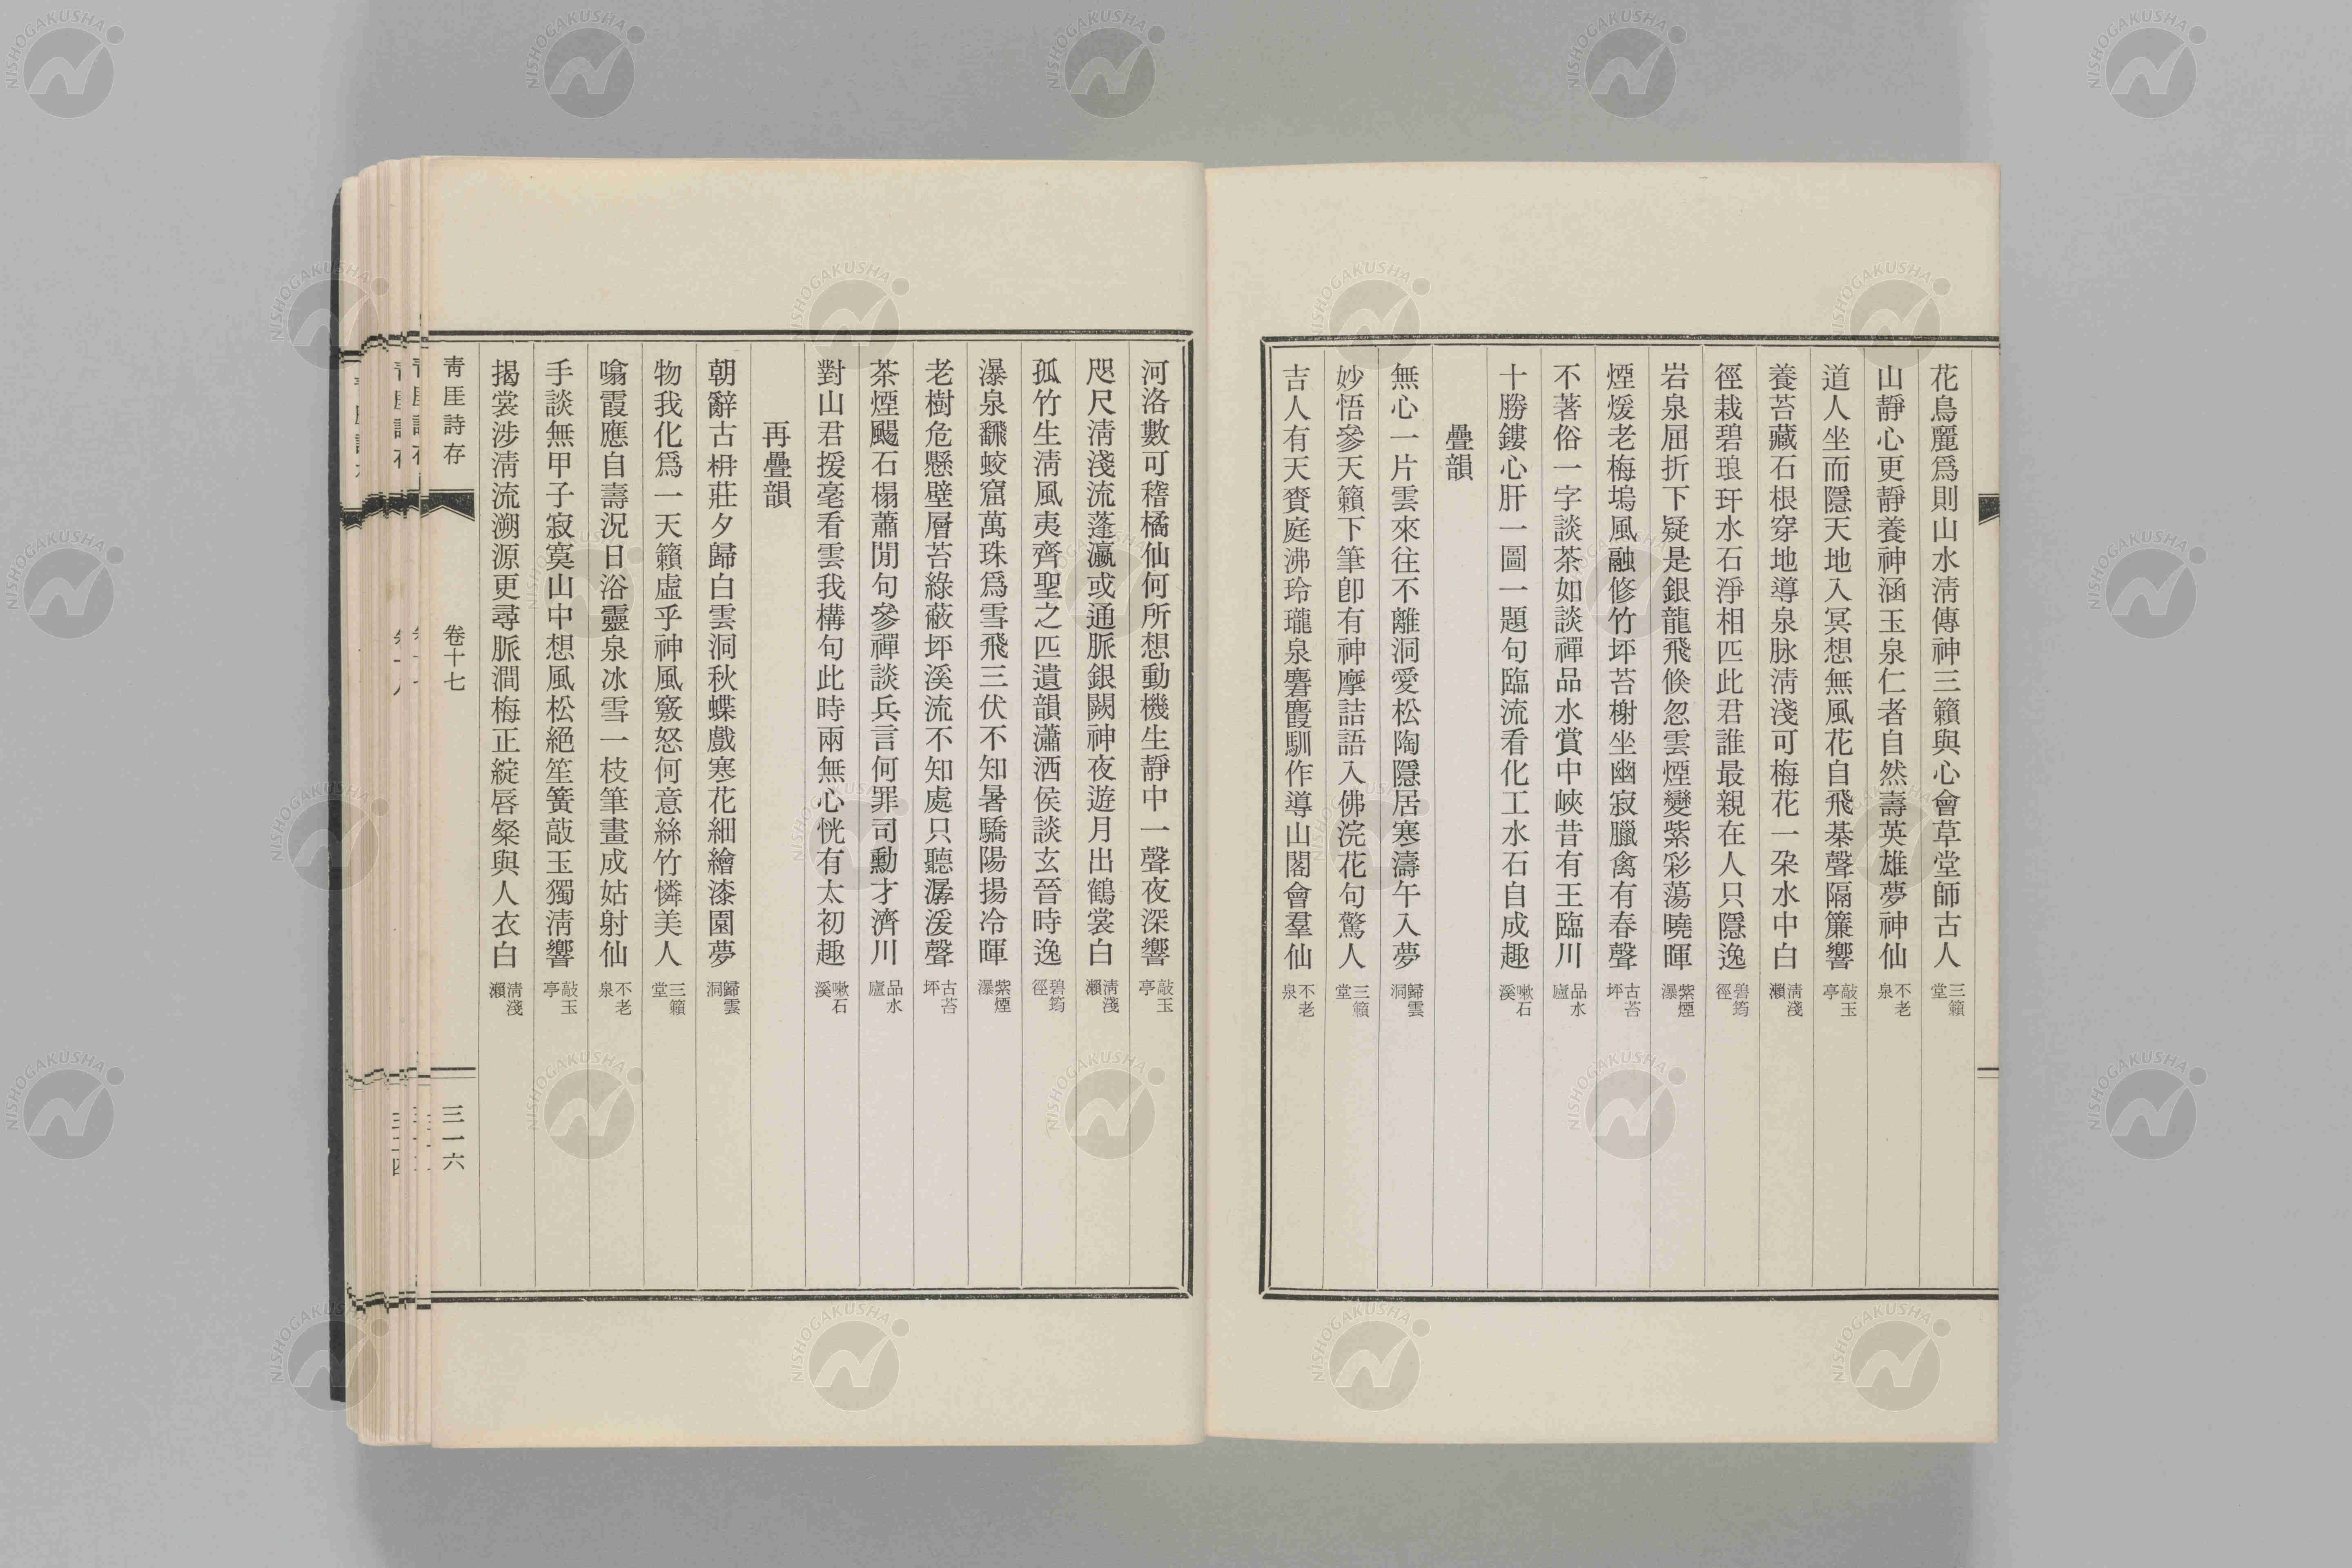 花鳥麗爲則山水淸傳神三籟與心會草堂師古人 三籟堂
山靜心更靜養神涵玉泉仁者自然壽英雄夢神仙 不老泉
道人坐而隱天地入冥想無風花自飛棊聲隔簾響 敲玉亭
養苔藏石根穿地導泉脉淸淺可梅花一朶水中白 淸淺瀨
徑栽碧琅玕水石淨相匹此君誰最親在人只隱逸 碧筠徑
岩泉屈折下疑是銀龍飛倏忽雲煙變紫彩蕩曉暉 紫煙瀑
煙煖老梅塢風融修竹坪苔榭坐幽寂臘禽有春聲 古苔坪
不著俗一字談茶如談禪品水賞中峽昔有王臨川 品水廬
十勝鏤心肝一圖一題句臨流看化工水石自成趣 嗽石溪
疊韻
無心一片雲來往不離洞愛松陶隱居寒濤午入夢 歸雲洞
妙悟參天籟下筆卽有神摩詰語入佛浣花句驚人 三籟堂
吉人有天賚庭沸玲瓏泉麏麚馴作導山閣會羣仙 不老泉
河洛數可稽橘仙何所想動機生靜中一聲夜深響 敲玉亭
咫尺淸淺流蓬瀛或通脈銀闕神夜遊月出鶴裳白 淸淺瀨
孤竹生淸風夷齊聖之匹遺韻瀟洒侯談玄晉時逸 碧筠徑
瀑泉飜蛟窟萬珠爲雪飛三伏不知暑驕陽揚冷暉 紫煙瀑
老樹危懸壁層苔綠蔽坪溪流不知處只聽潺湲聲 古苔坪
茶煙颺石榻蕭閒句參禪談兵言何罪司勳才濟川 品水廬
對山君援毫看雲我構句此時兩無心恍有太初趣 嗽石溪
再疊韻
朝辭古枏莊夕歸白雲洞秋蝶戲寒花細繪漆園夢 歸雲洞
物我化爲一天籟虛乎神風竅怒何意絲竹憐美人 三籟堂
噏霞應自壽況日浴靈泉冰雪一枝筆畫成姑射仙 不老泉
手談無甲子寂寞山中想風松絕笙簧敲玉獨淸響 敲玉亭
揭裳涉淸流溯源更尋脈澗梅正綻唇粲與人衣白 淸淺瀨
靑厓詩存
卷十七
三一六
NISHOGAKUSHA